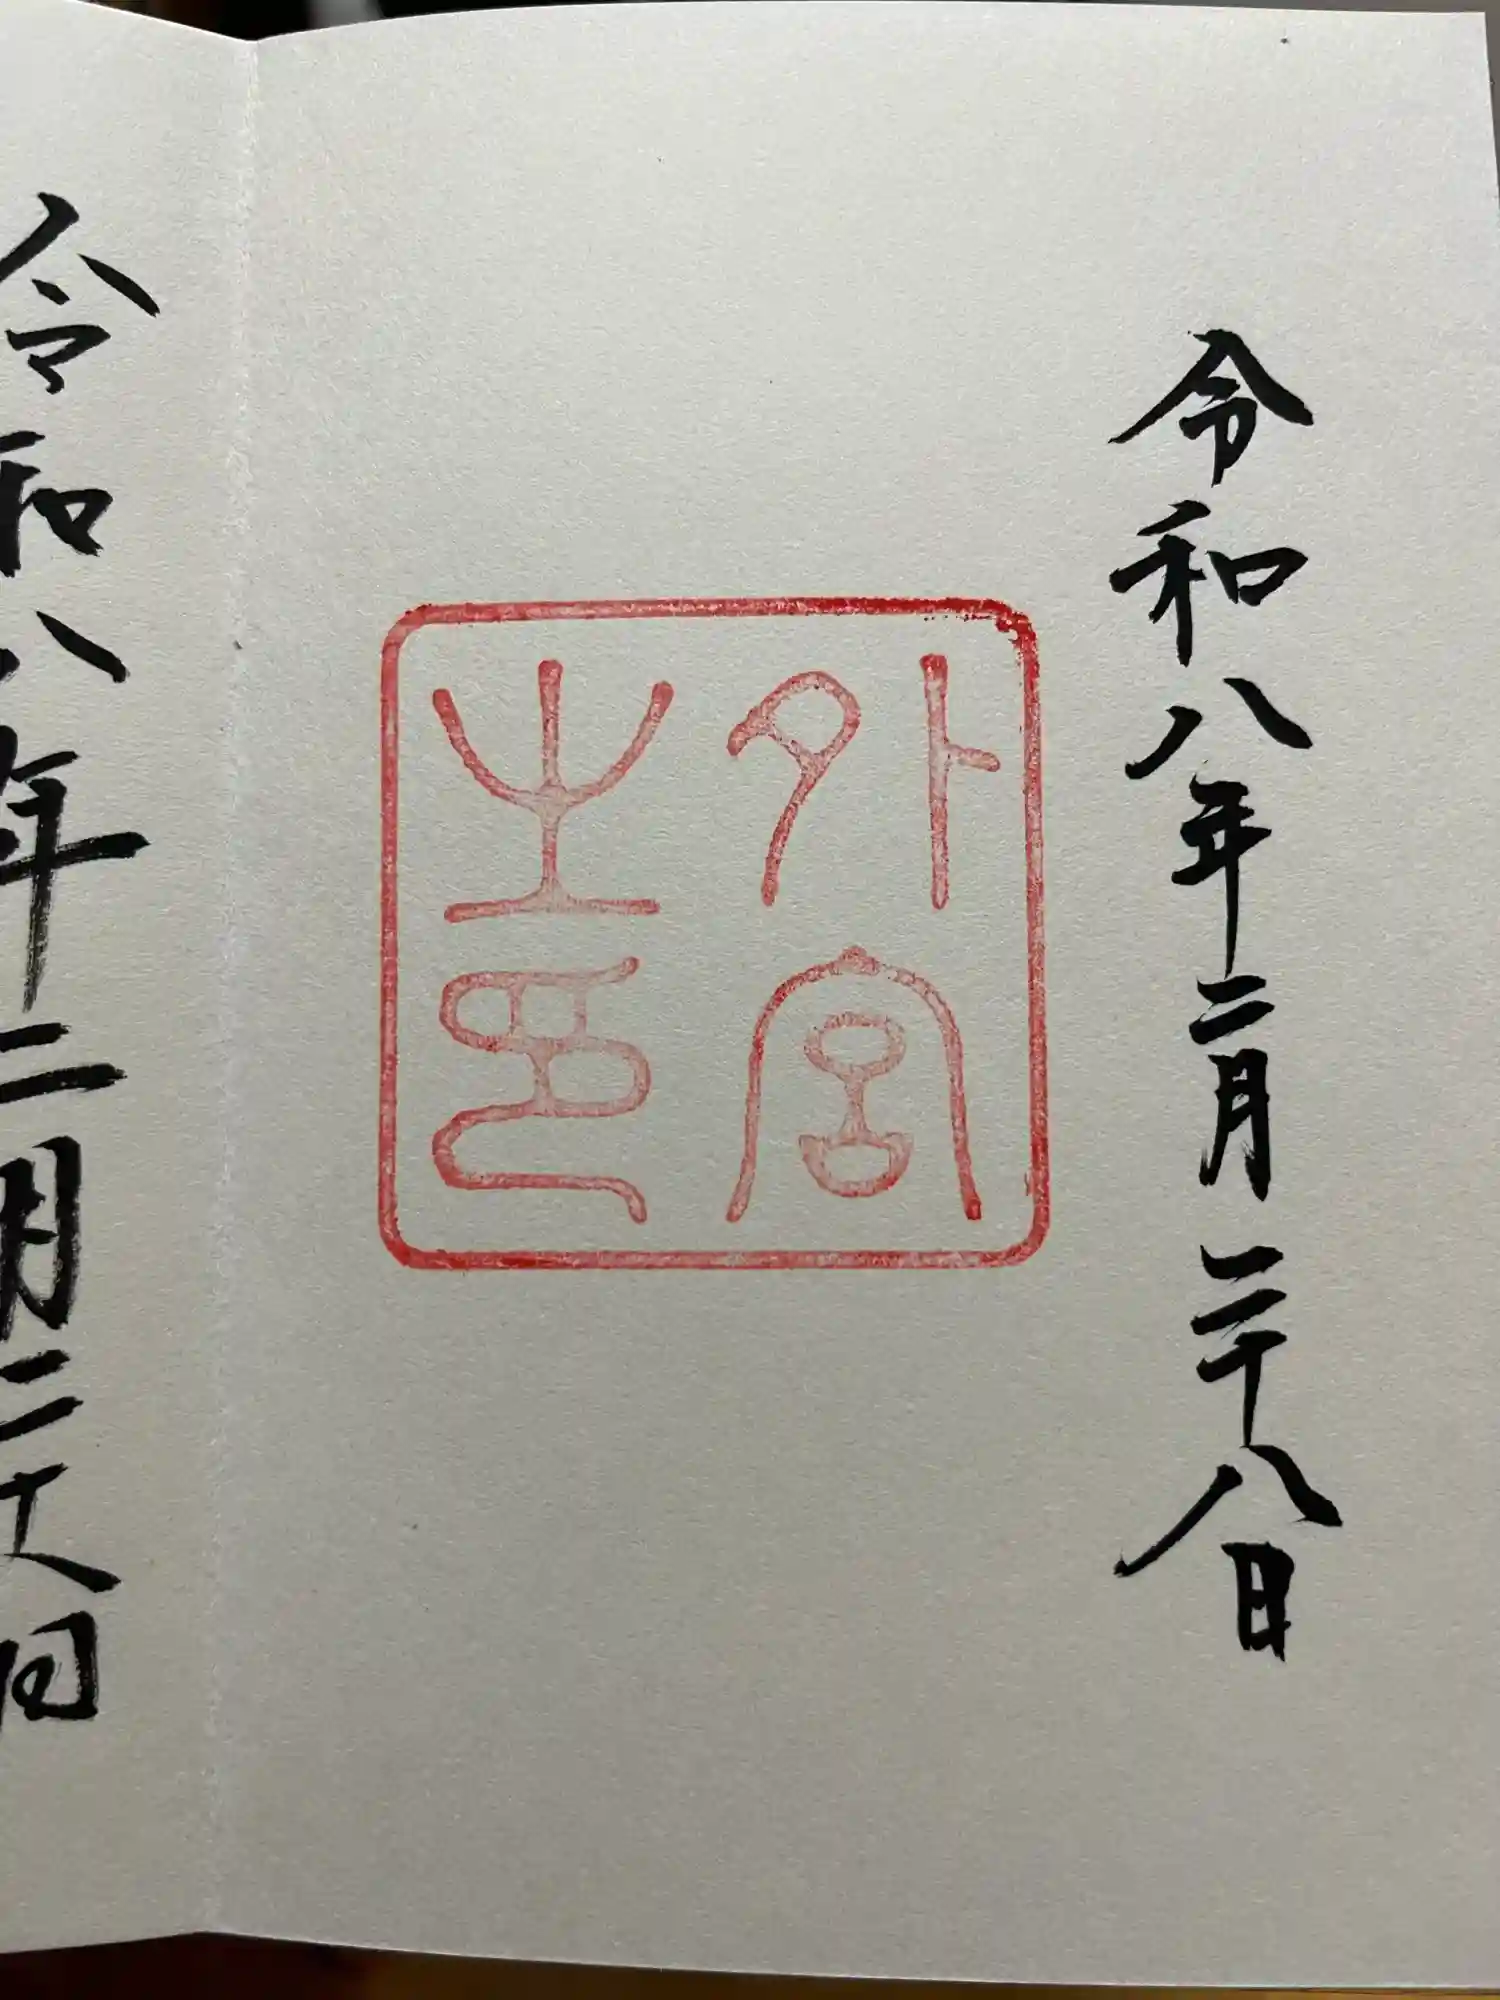 令和八年二月二十八日
外宮之印
令和八年二月二十八日